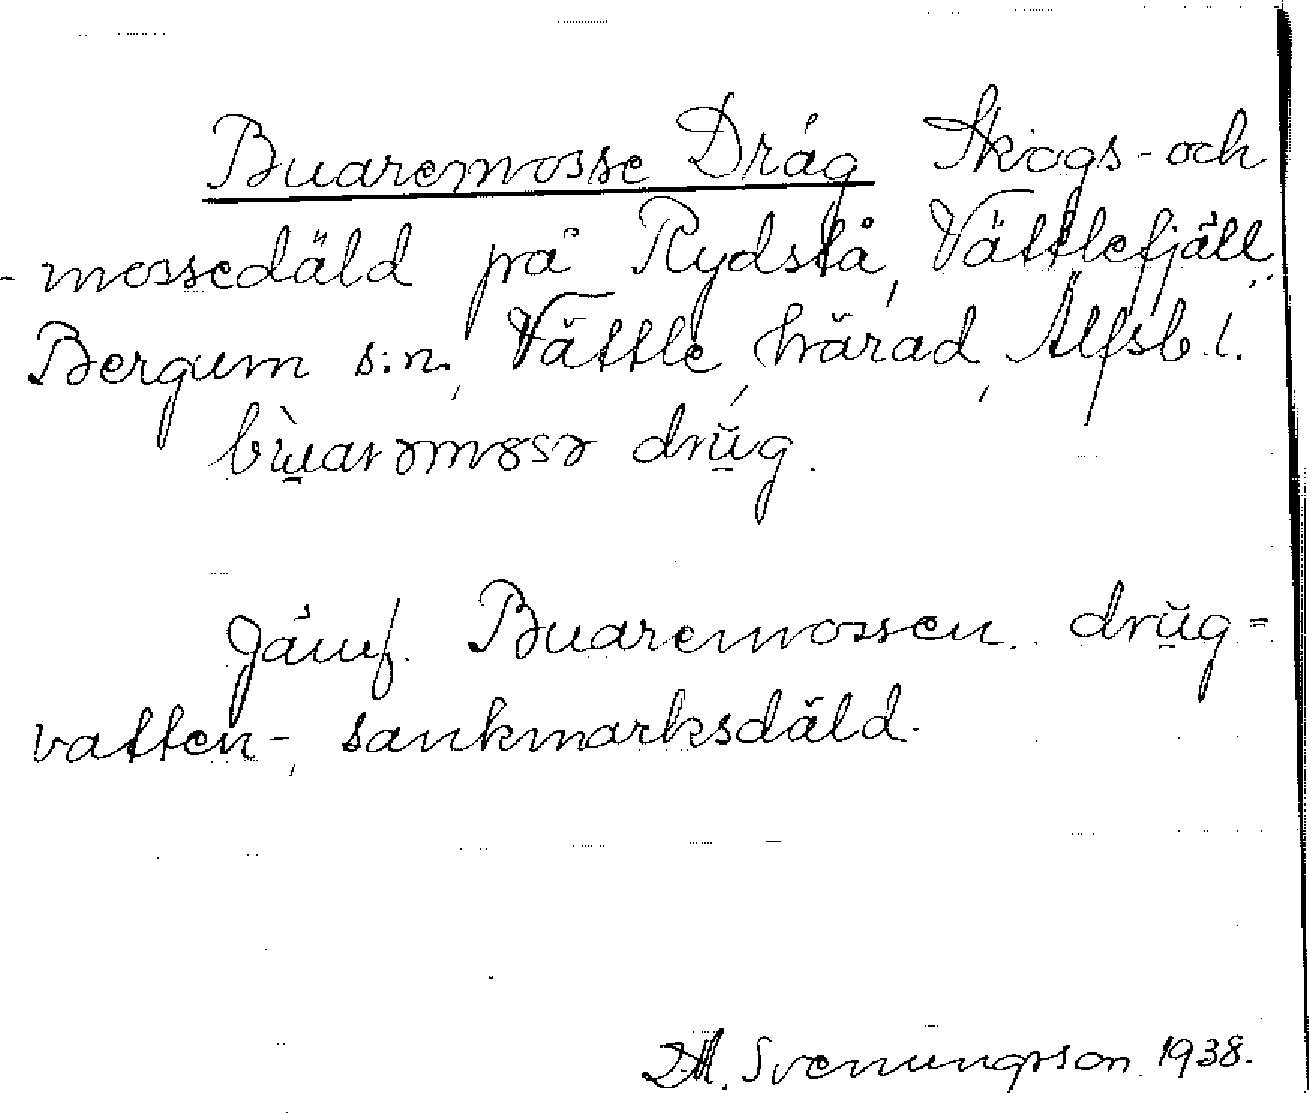 Buaremosse Dråg Skogs- och
- mossedäld på Rydstå, Vättlefjäll.
Bergum s:n, Vättle, härad, Älfsb. l.
bùarəmɞsə drŭg.
Jämf. Buaremossen. drŭg=
vatten-, sankmarksdäld.
Svenungsson 1938.